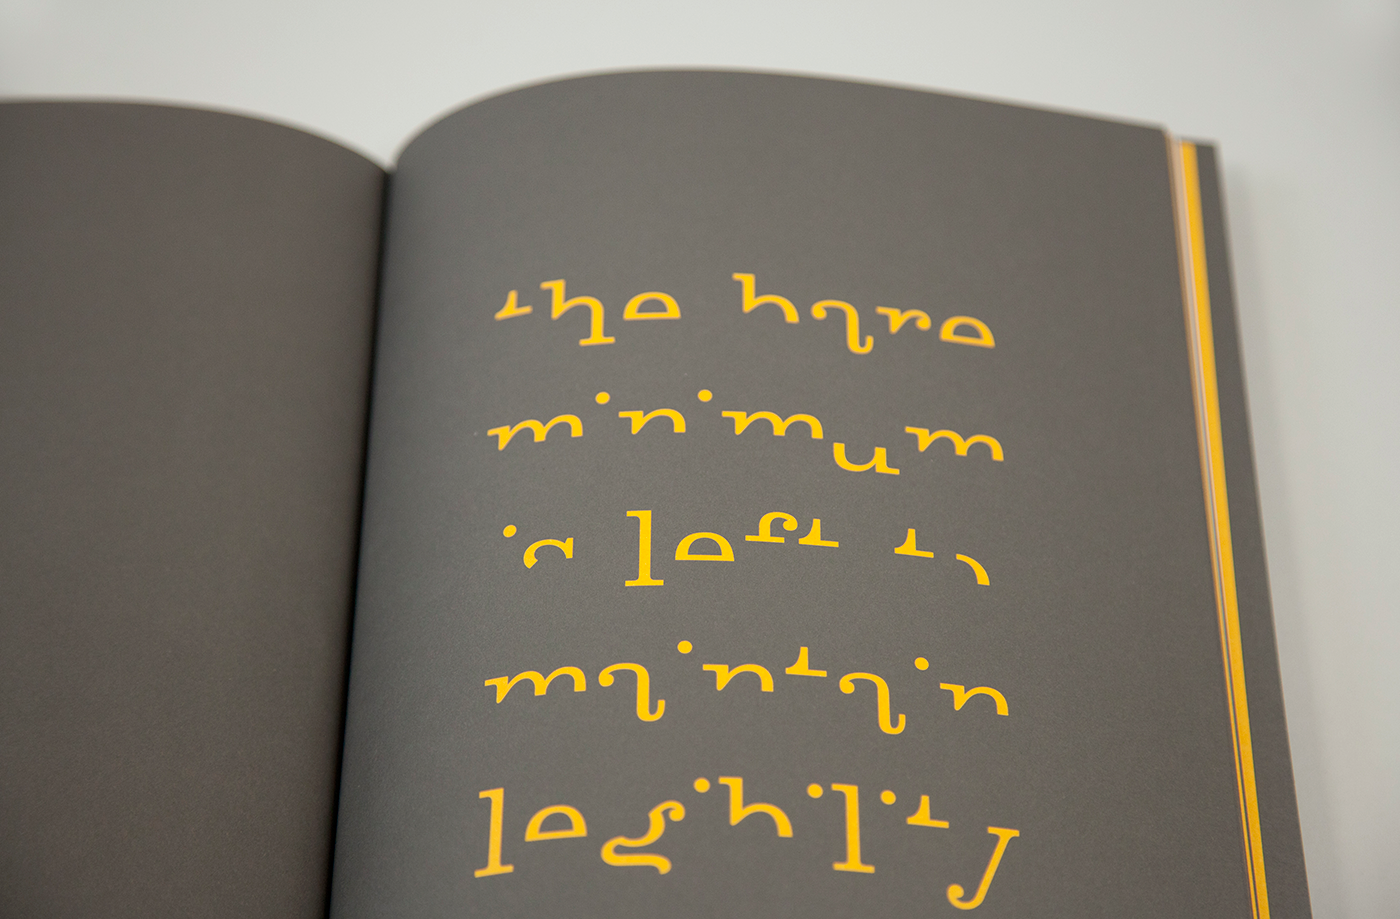 the bare
minimum
is left to
maintain
legibility